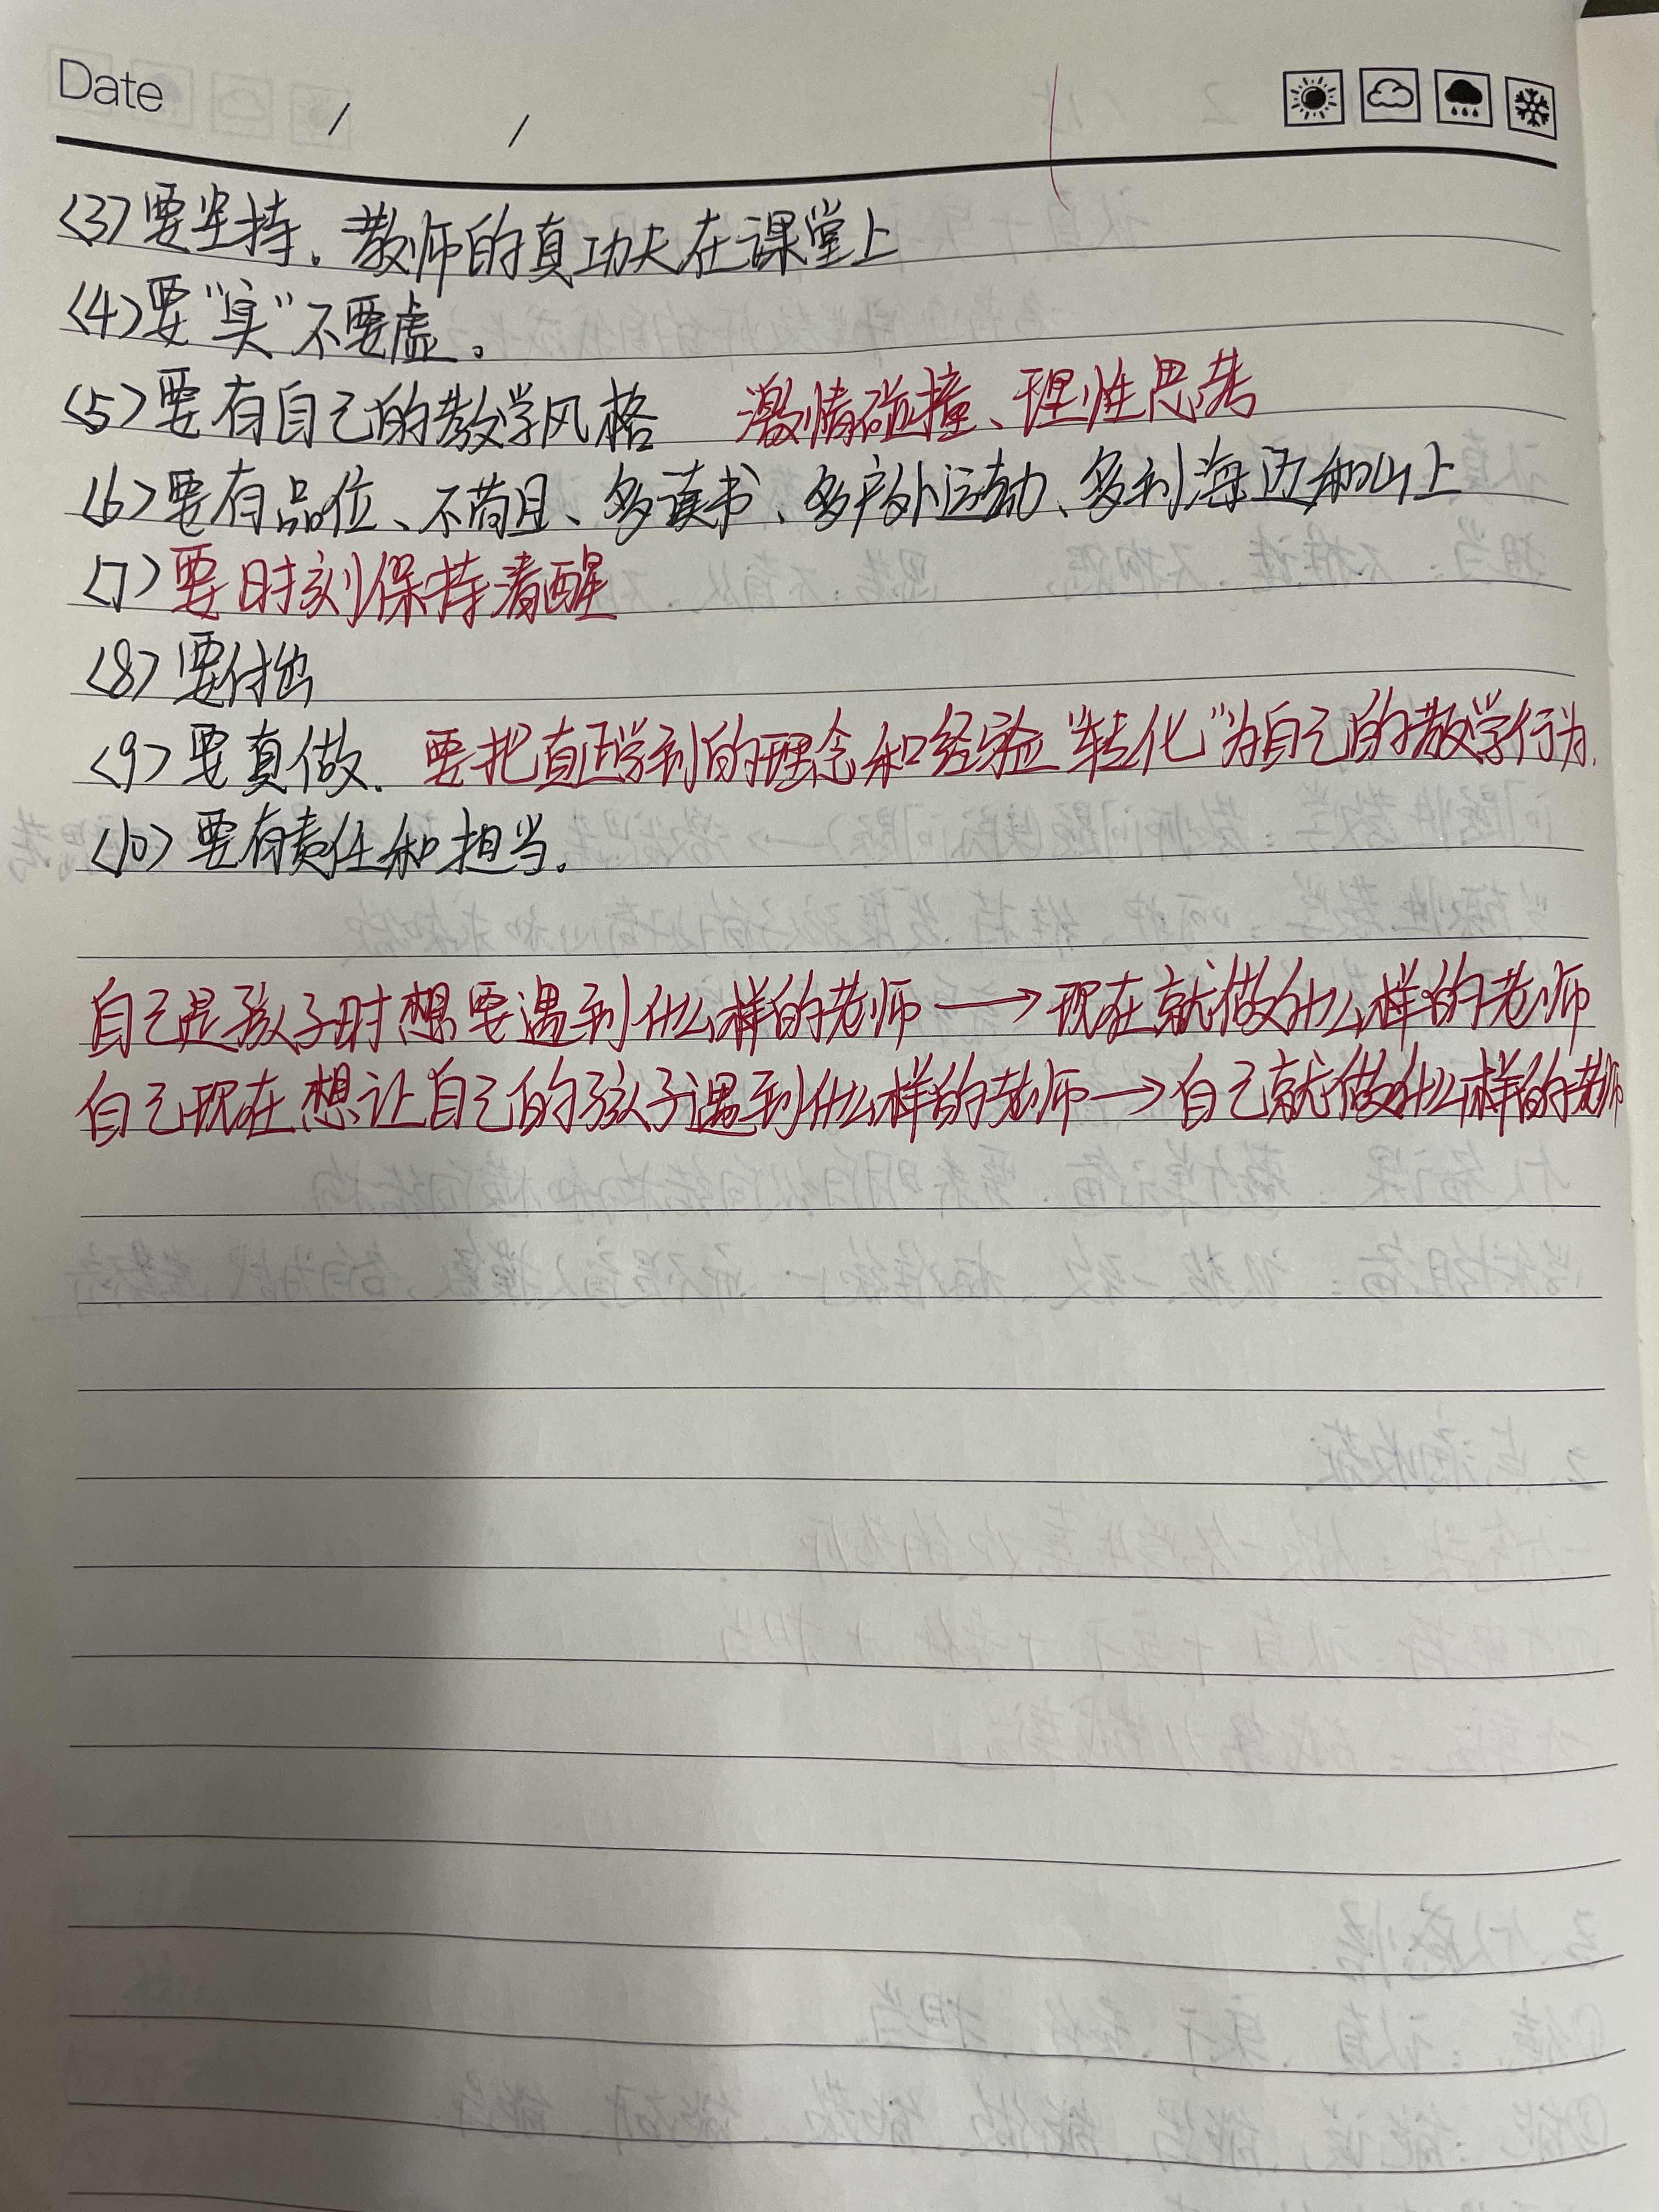 Date / /
(3) 要坚持。教师的真功夫在课堂上
(4) 要“实”不要虚。
(5) 要有自己的教学风格 激情碰撞、理性思考
(6) 要有品位、不苟且、多读书、多户外运动、多到海边和山上
(7) 要时刻保持清醒
(8) 要付出
(9) 要真做. 要把真正学到的理念和经验“转化”为自己的教学行为.
(10) 要有责任和担当.
自己是孩子时想要遇到什么样的老师 → 现在就做什么样的老师
自己现在想让自己的孩子遇到什么样的老师 → 自己就做什么样的老师